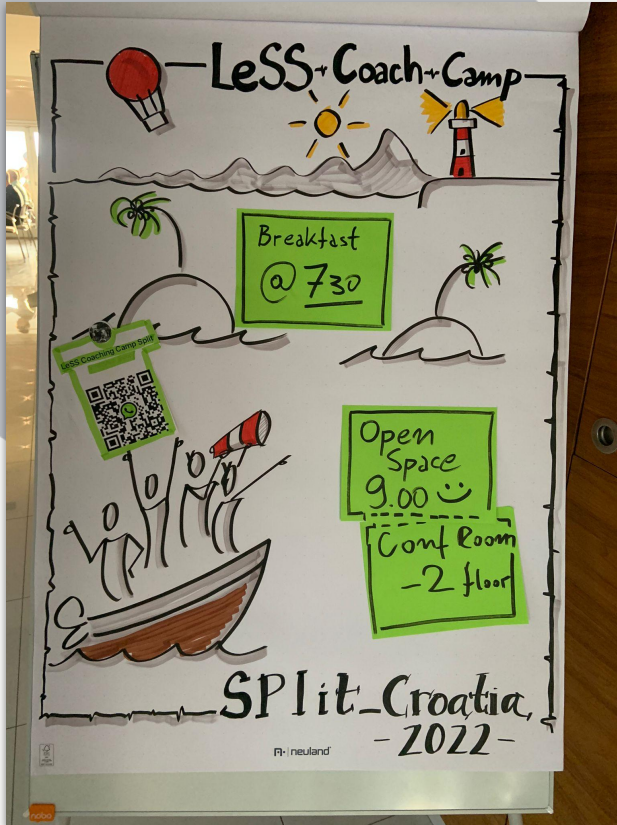 LeSS + Coach + Camp
Breakfast
@ 730
LeSS Coaching Camp Split
Open
Space
9.00
Conf Room
-2 floor
SPlit_Croatia,
-2022-
neuland
nobo